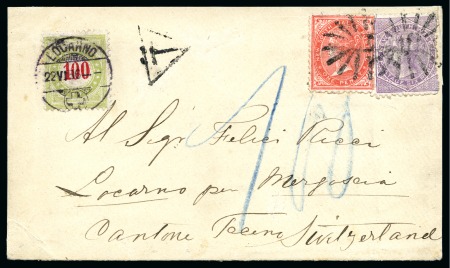 LOCARNO
22 VI
100
T
100
Al Sigr Felici Ricci
Locarno per Mergoscia
Cantone Tecino Switzerland